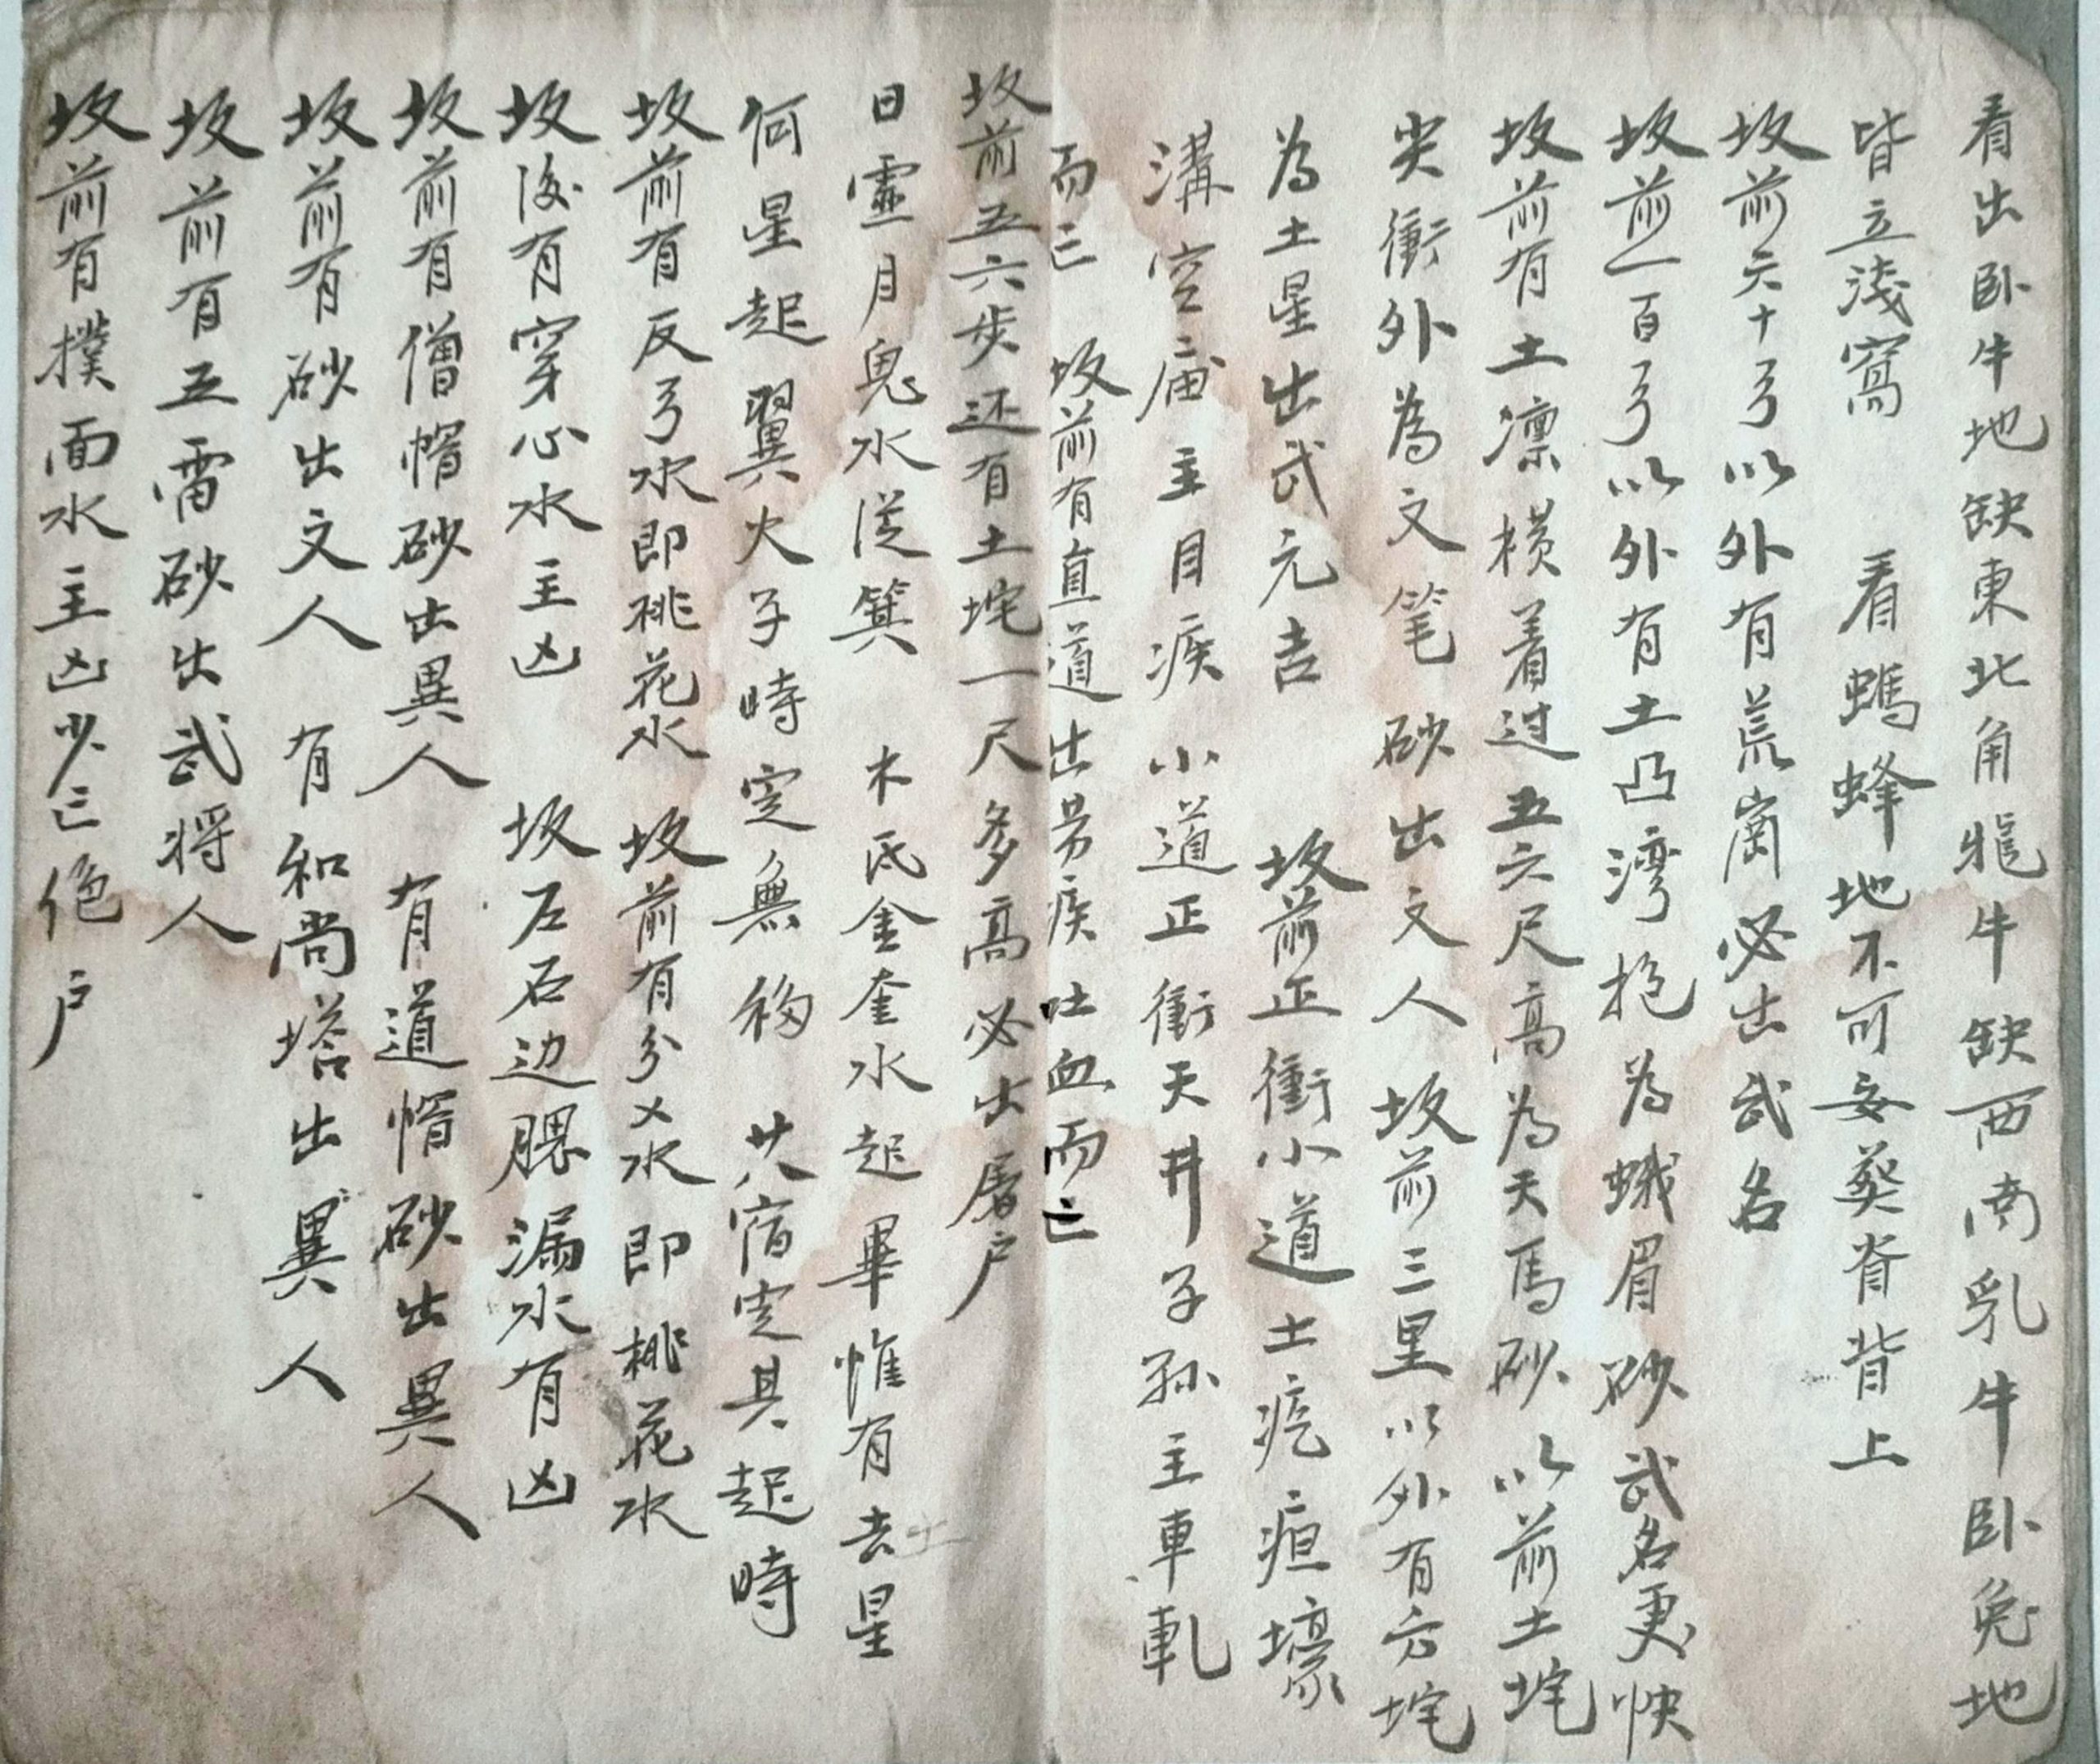 看出卧牛地缺東北角牤牛缺西南乳牛卧兔地
皆立淺窩 看螞蜂地不可妄葵脊背上
坟前六十弓以外有荒崗必出武名
坟前一百弓以外有土凸湾抱為蛾眉砂武名更快
坟前有土凛横着过五六尺高為天馬砂以前土垞
尖衝外為文笔砂出文人 坟前三里以外有方垞
為土星出武元吉 坟前正衝小道土疙疸壕
溝空庙主目疾小道正衝天井子孫主車軋
而亡 坟前有直道出劳疾吐血而亡
坟前五六步还有土垞一尺多高必出屠户
日虚月鬼水従箕 木氐金奎水起畢惟有去星
何星起翼火子時定無移 廿八宿定其起時
坟前有反弓水即桃花水 坟前有分乂水即桃花水
坟後有穿心水主凶 坟左右边腮漏水有凶
坟前有僧帽砂出異人 有道帽砂出異人
坟前有砂出文人 有和尚塔出異人
坟前有五雷砂出武将人
坟前有撲面水主凶少亡绝户